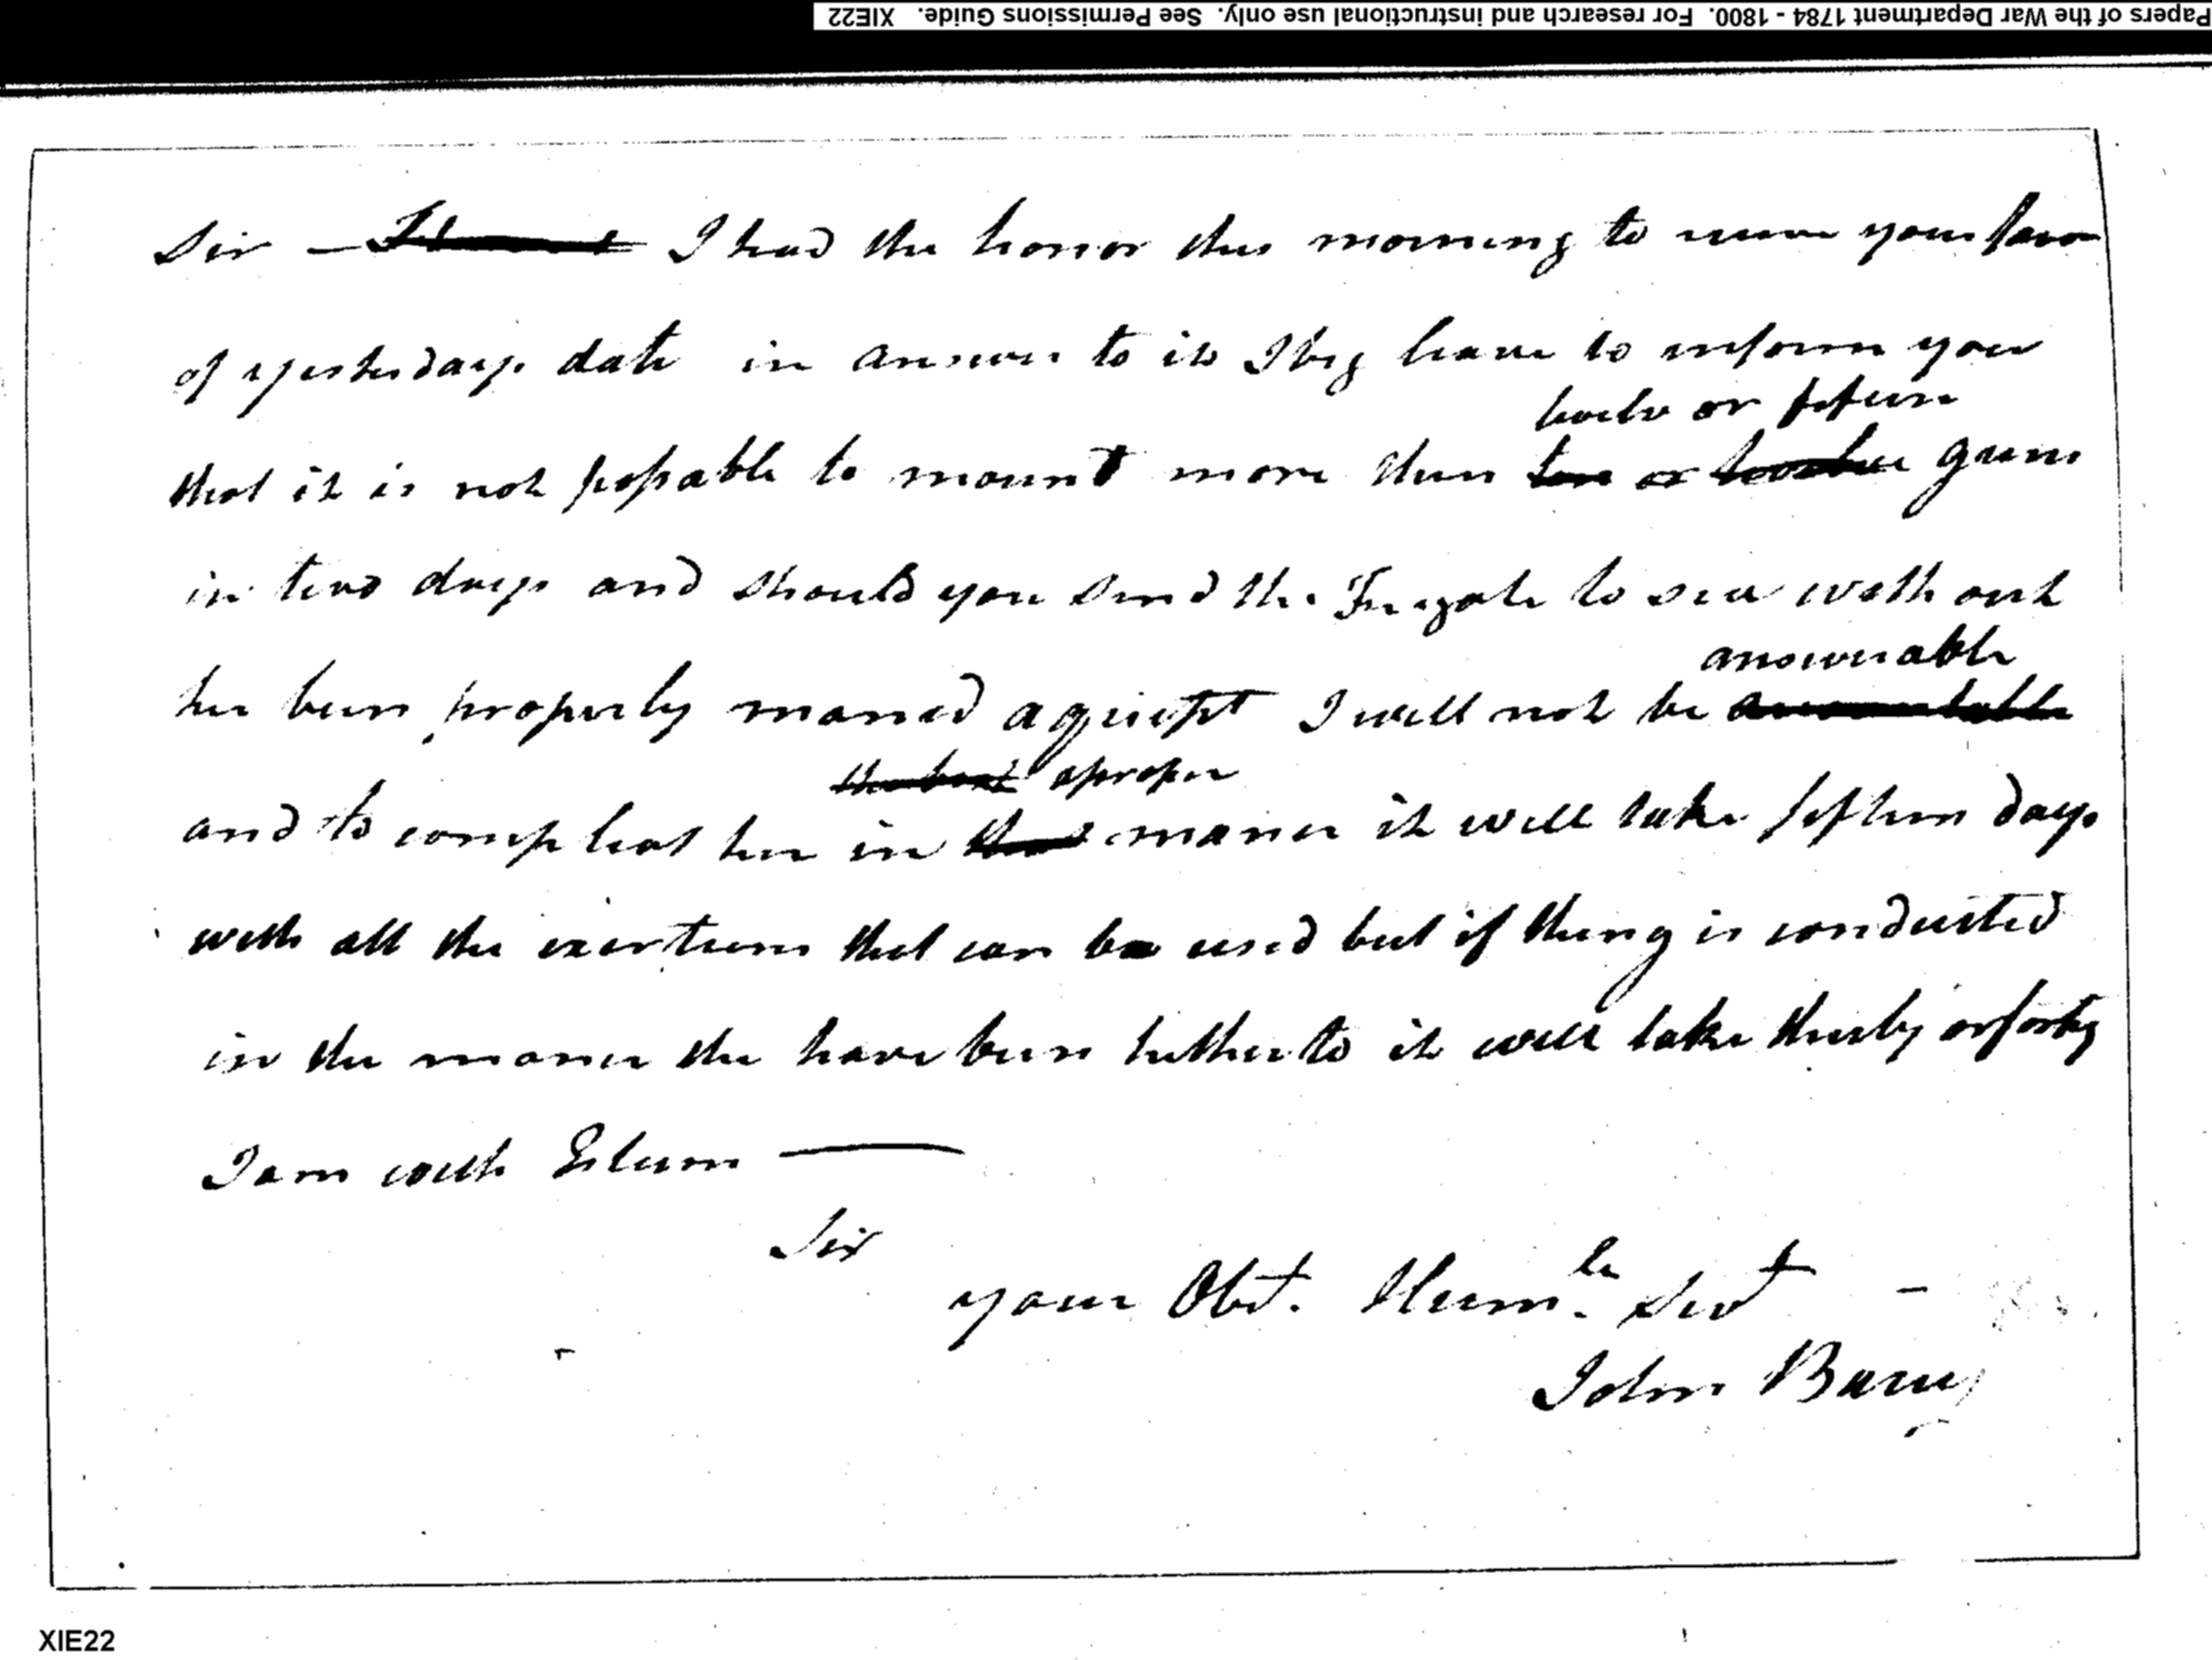 Papers of the War Department 1784 - 1800. For research and instructional use only. See Permissions Guide. XIE22
Sir — I had the honor this morning to receive your favor
of yesterdays date in answer to it I beg leave to inform you
twelve or fifteen
that it is not possable to mount more then ten or twelve guns
in two days and should you send the Frigate to sea without
answerable
her been properly maned aquipt I will not be accountable
the best aproper
and to compleat her in that maner it will take fifteen days
with all the exertions that can be used but if thing is conducted
in the maner the have been hitherto it will take thirty or forty
I am with Esteem —
Sir
your Obt. Humle Sert —
John Barry
XIE22